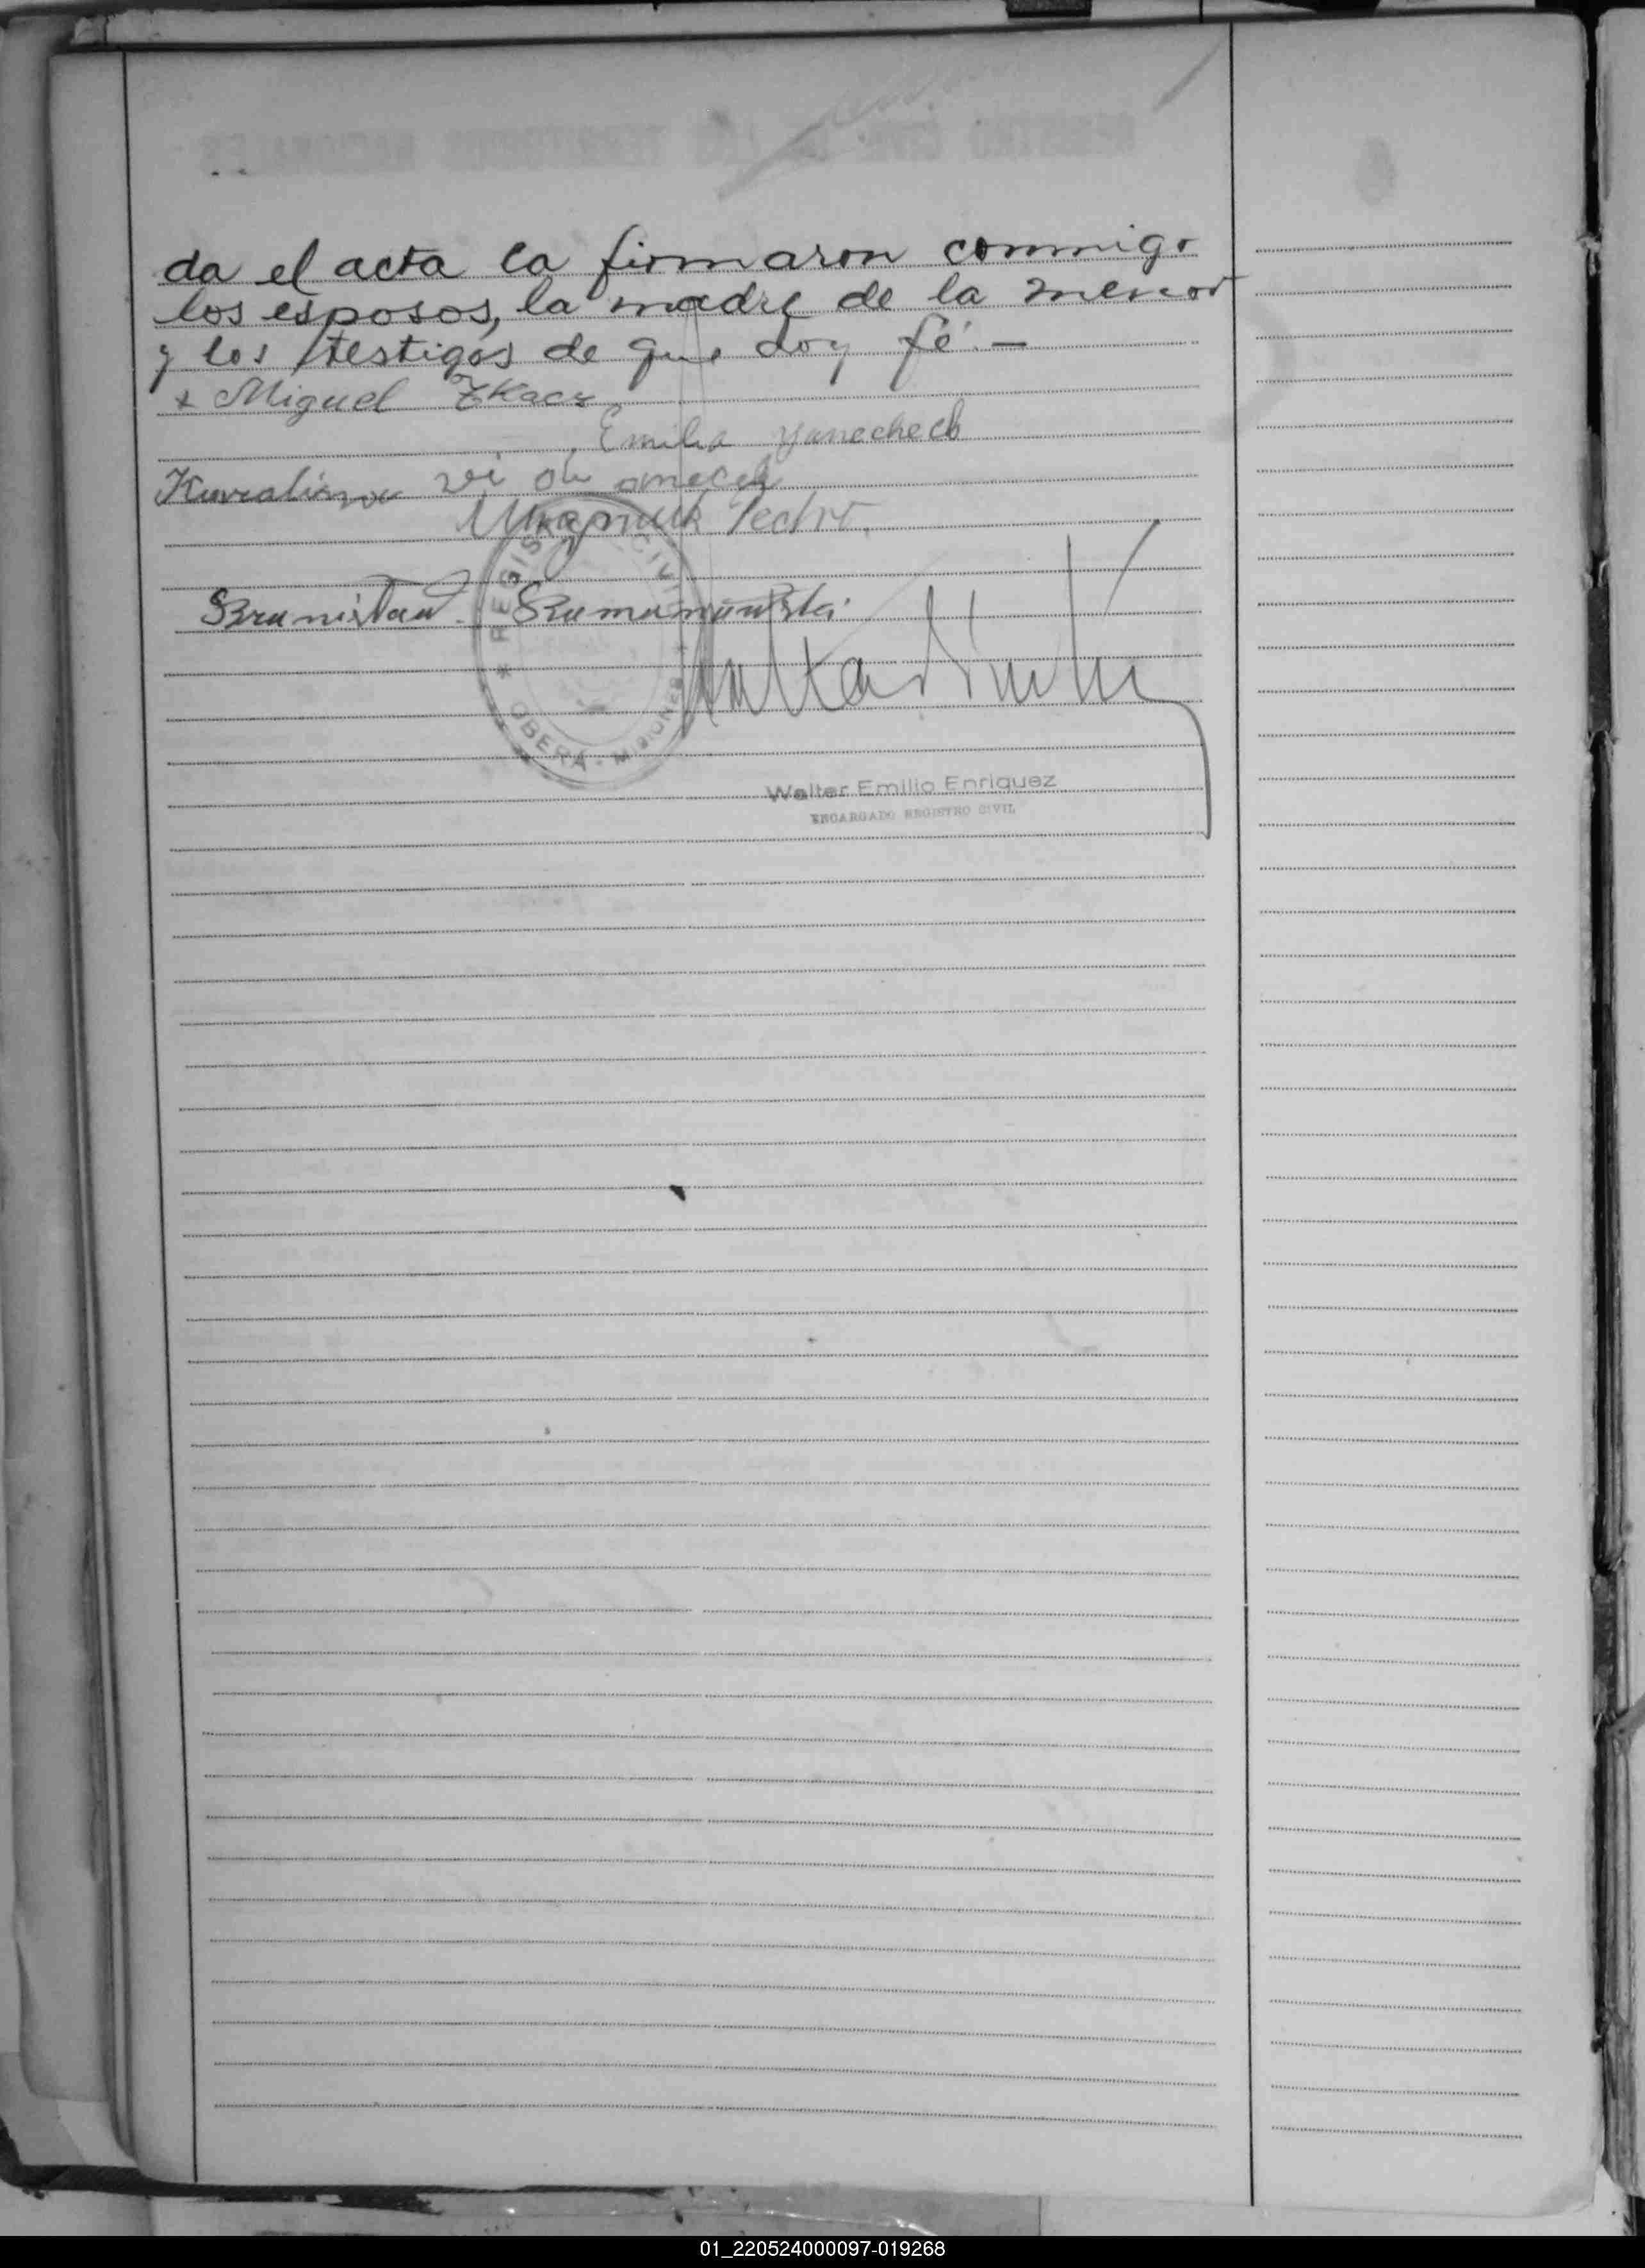 da el acta la firmaron conmigo
los esposos, la madre de la menor
y los testigos de que doy fé. —
+ Miguel Tkacz
Emilia Yanecheck
REGISTRO CIVIL
* OBERÁ - MISIONES *
Walter Emilio Enriquez
ENCARGADO REGISTRO CIVIL
01_220524000097-019268